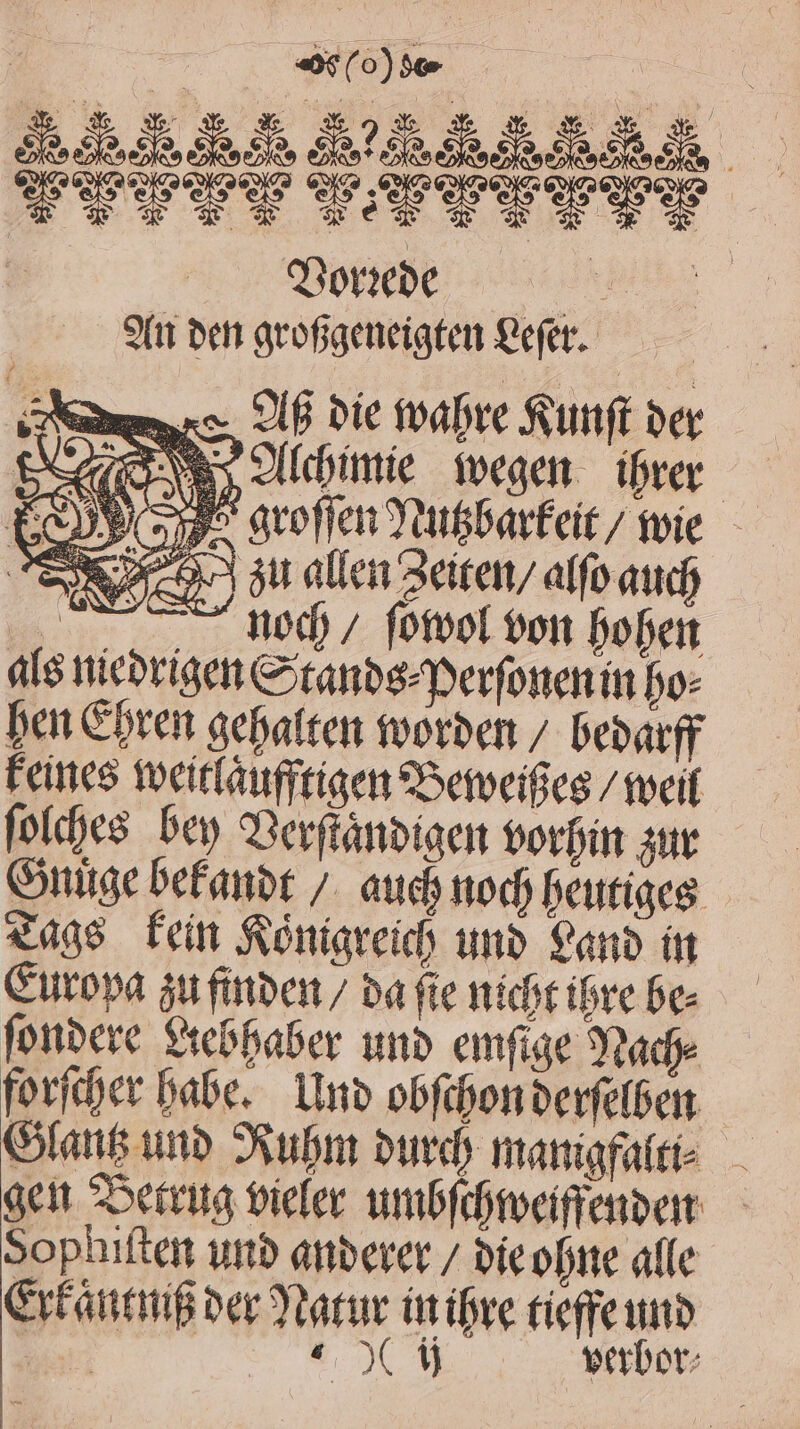 (o)
Vorꝛede
An den großgeneigten Leſer.
DAß die wahre Kunſt der
Alchimie wegen ihrer
groſſen Nutzbarkeit / wie
zu allen Zeiten / alſo auch
noch / ſowol von hohen
als niedrigen Stands-Perſonen in ho-
hen Ehren gehalten worden / bedarff
keines weitlaͤufftigen Beweißes / weil
ſolches bey Verſtaͤndigen vorhin zur
Gnuͤge bekandt / auch noch heutiges
Tags kein Koͤnigreich und Land in
Europa zu finden / da ſie nicht ihre be-
ſondere Liebhaber und emſige Nach-
forſcher habe. Und obſchon derſelben
Glantz und Ruhm durch manigfalti-
gen Betrug vieler umbſchweiffenden
Sophiſten und anderer / die ohne alle
Erkaͤntniß der Natur in ihre tieffe und
)( ij verbor-